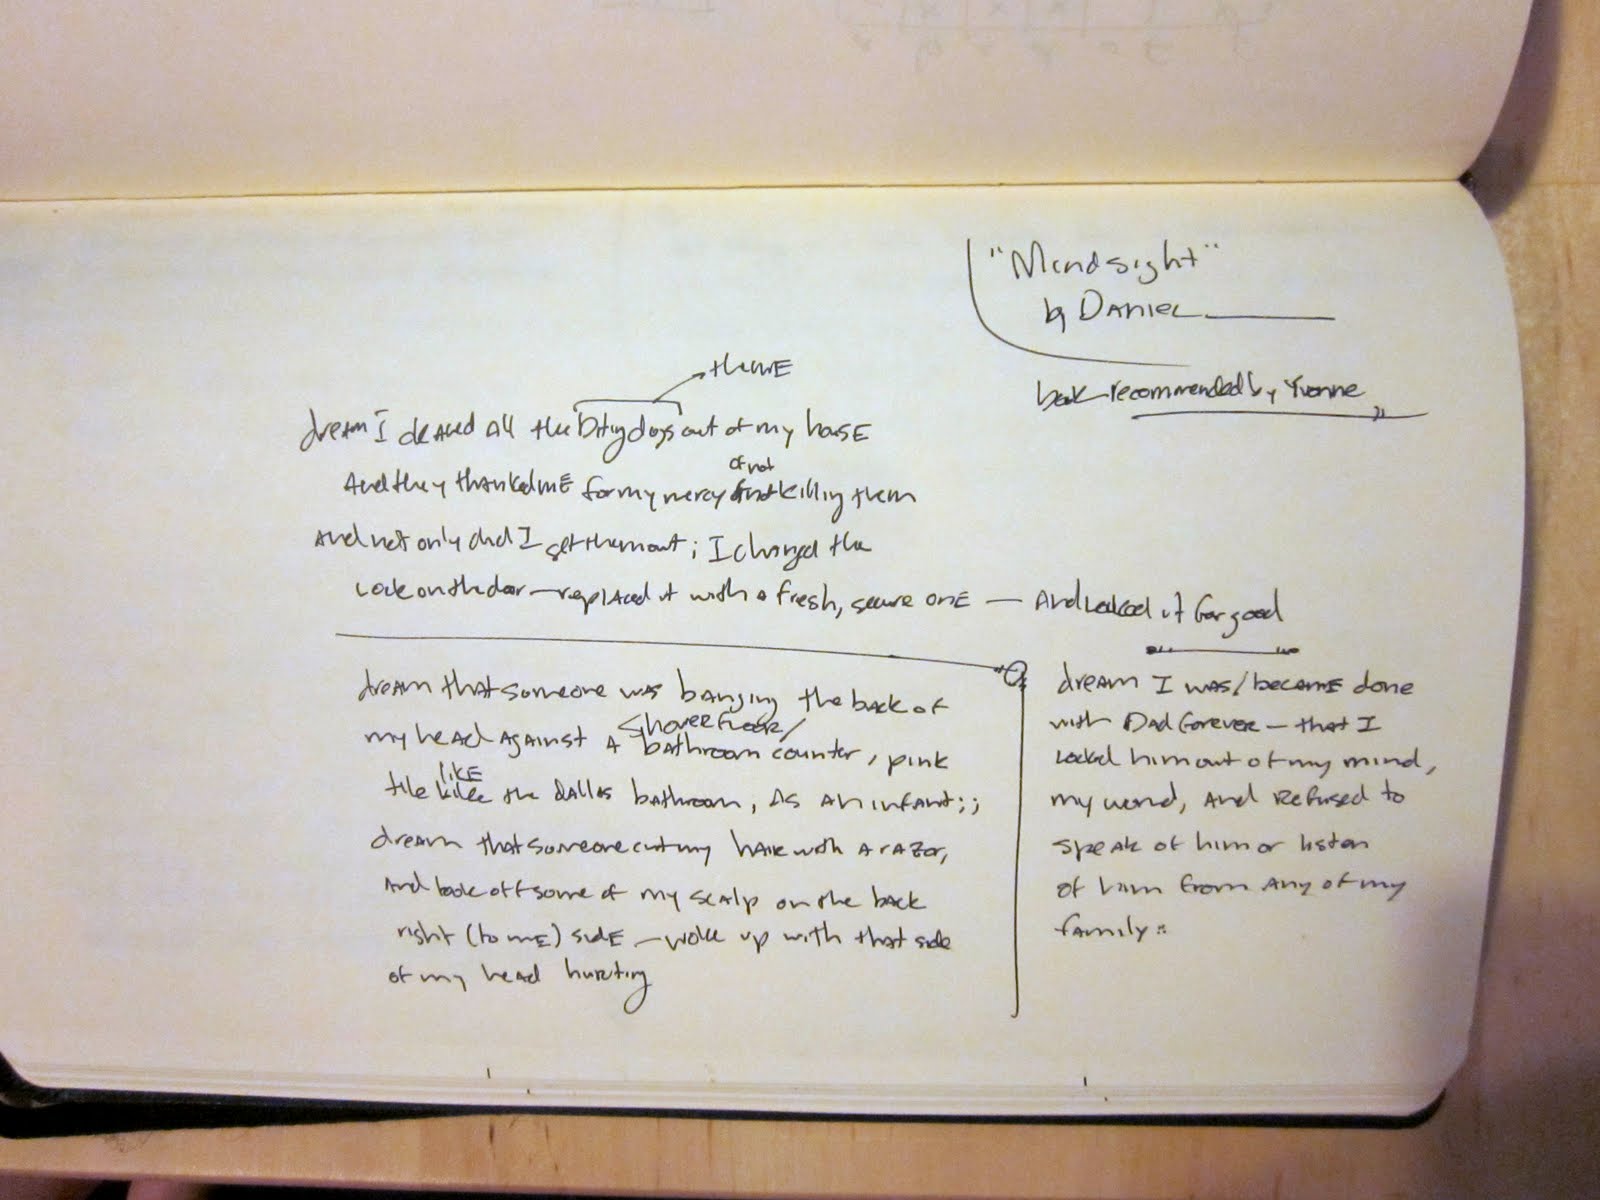 "Mindsight"
by Daniel
book recommended by Yvonne
theme
dream I cleared all the biting dogs out of my house
of not
And they thanked me for my mercy killing them
And not only did I get them out; I changed the
Lock on the door — replaced it with a fresh, secure one — And Locked it for good
dream that someone was banging the back of
shower floor/
my head against a bathroom counter, pink
like
tile the dallas bathroom, as an infant;;
dream that someone cut my hair with a razor,
and took off some of my scalp on the back
right (to me) side — woke up with that side
of my head hurting
dream I was/became done
with Dad forever — that I
Locked him out of my mind,
my world, and refused to
speak of him or listen
of him from any of my
family::